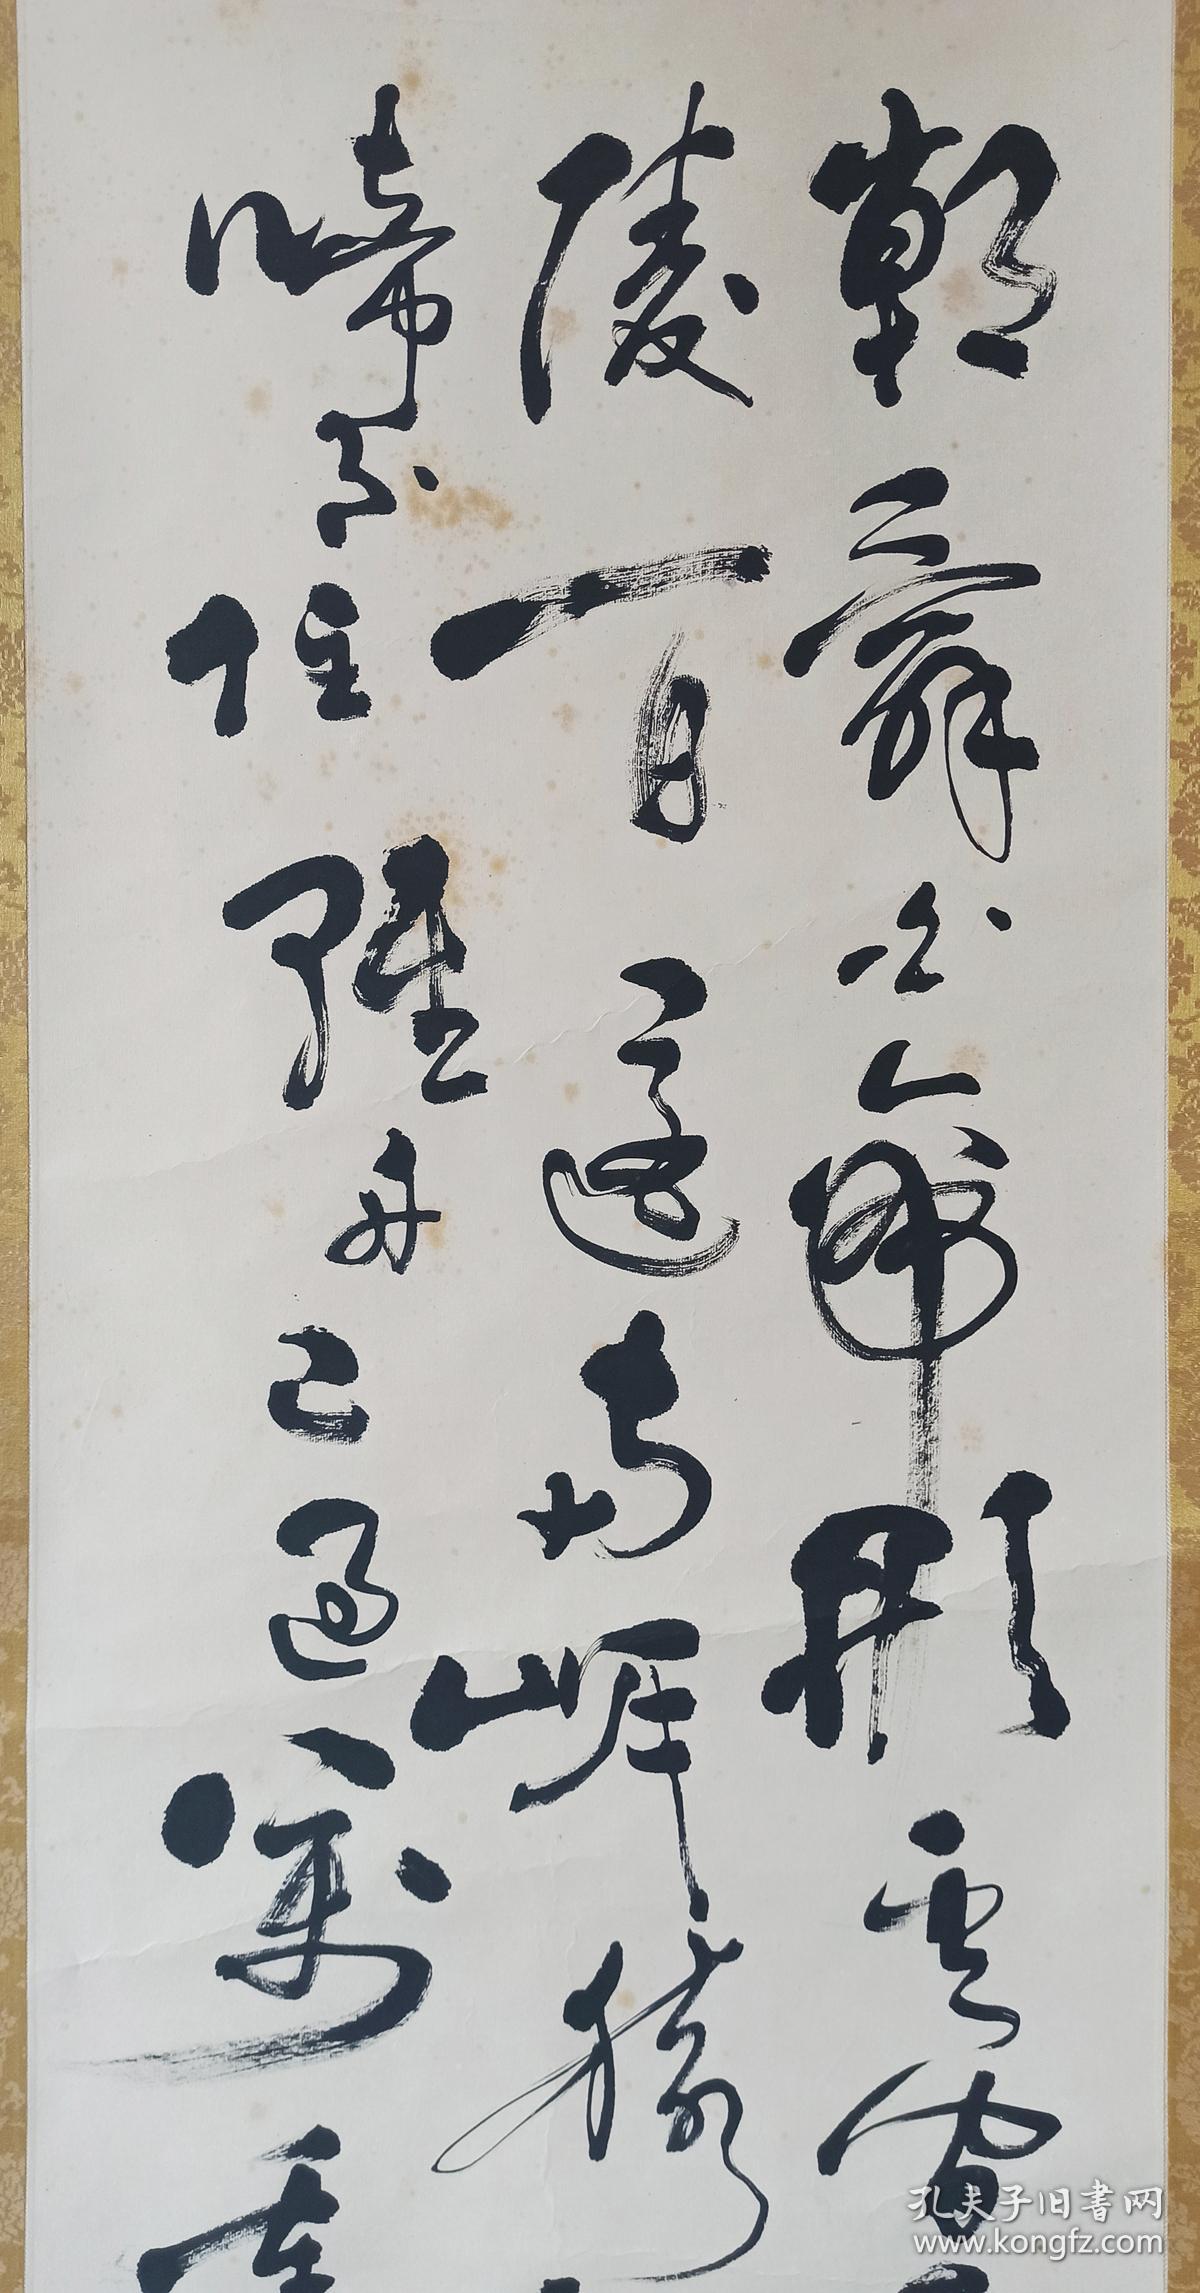 朝辭白帝彩雲間
陵一日還兩岸猿
啼不住輕舟已過萬重
孔夫子旧书网
www.kongfz.com